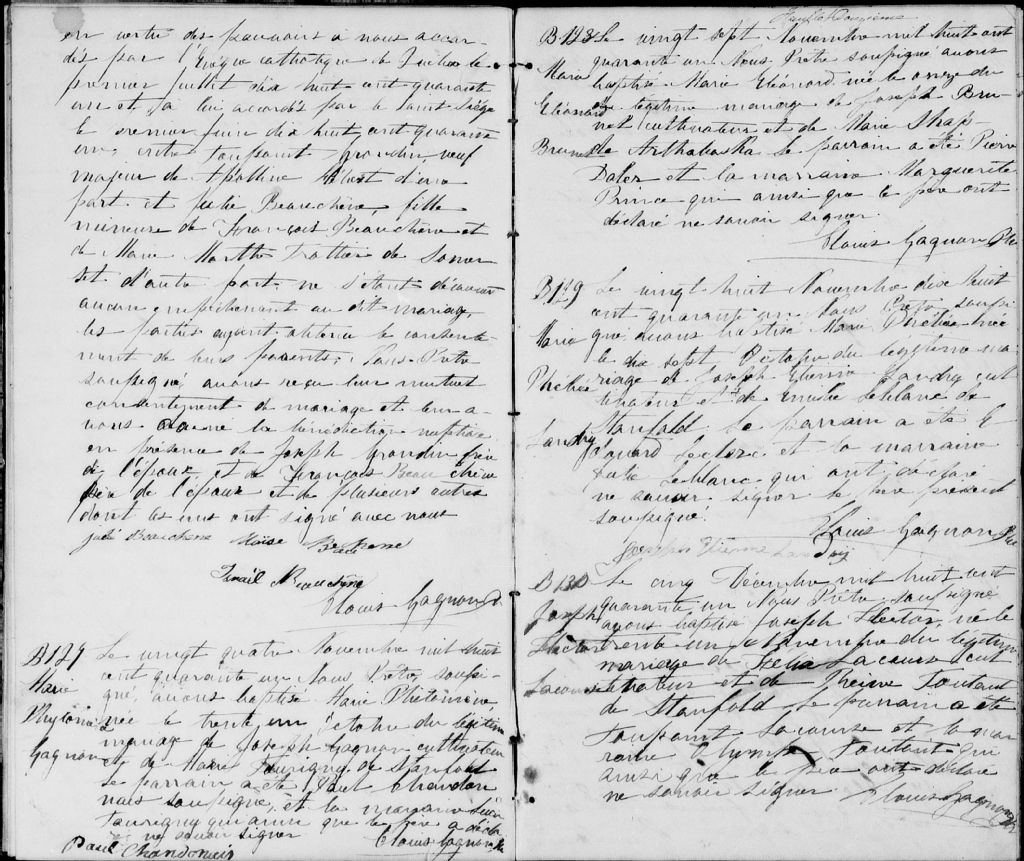 en vertu des pouvoirs à nous accor-
dés par l'Evêque catholique de Québec le
premier juillet dix huit cent quarante
un et à lui accordés par le Saint Siège
le premier Juin dix huit cent quarante
un, entre Toussaint Grondin, veuf
majeur de Apolline d'une
part et Julie Beauchène, fille
mineure de François Beauchène et
de Marie Marthe Trottier de Somer
set d'autre part, ne s'étant découvert
aucun empêchement au dit mariage
les parties ayant obtenu le consente-
ment de leurs parents; Nous Prêtre
soupigné, avons reçu leur mutuel
consentement de mariage et leur a-
vons donné la bénédiction nuptiale
en présence de Joseph Grondin frère
de l'époux et de François Beauchène
père de l'épouse et de plusieurs autres
dont les uns ont signé avec nous
Julie Beauchene Moïse
Beauchene
Clovis Gagnon Ptre
B129
Marie
Gagnon
Le vingt quatre Novembre mil huit
cent quarante un Nous Prêtre soupi-
gné, avons baptisé Marie Philomène,
née le trente un Octobre du légitime
mariage de Joseph Gagnon cultivateur
et de Marie Tourigny de Stanfold
Le parrain a été Paul Chandon
nais soupigné, et la marraine
Tourigny qui ainsi que le père a déclaré
ne savoir signer Clovis Gagnon Ptre
Paul Chandonais
Feuillet Douzieme
B128
Marie
Eléonard
Brunet
Le vingt sept Novembre mil huit cent
quarante un Nous Prêtre soupigné avons
baptisé Marie Eléonard née le onze du
légitime mariage de Joseph Bru-
net cultivateur et de Marie
de Arthabaska Le parrain a été Pierre
et la marraine Marguerite
Prince qui ainsi que le père ont
déclaré ne savoir signer.
Clovis Gagnon Ptre
B129
Marie
Landry
Le vingt huit Novembre dix huit
cent quarante un Nous Prêtre soupi-
gné, avons baptisé Marie née
le dix sept Octobre du légitime ma-
riage de Joseph Etienne Landry cul
tivateur et de Emilie Leblanc de
Stanfold Le parrain a été E
douard Leclerc et la marraine
Julie Leblanc qui ont déclaré
ne savoir signer le père présent
soupigné.
Clovis Gagnon Ptre
Joseph Etienne Landry
B130
Joseph
Hector
Lacourse
Le cinq Décembre mil huit cent
quarante un Nous Prêtre soupigné
avons baptisé Joseph Hector, né le
trente un Novembre du légitime
mariage de Lacourse cul
tivateur et de Reine Toutant
de Stanfold Le parrain a été
Toupaint Lacourse et la mar
raine Olympe Toutant qui
ainsi que le père ont déclaré
ne savoir signer Clovis Gagnon Ptre